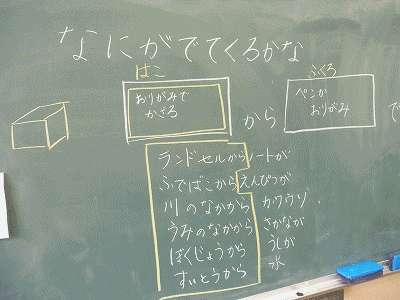 なにがでてくるかな
はこ
ふくろ
おりがみで
かざる
から
ペンか
おりがみ
で
ランドセルからノートが
ふでばこからえんぴつが
川のなかから カワウソ
うみのなかから さかなが
ぼくじょうから うしが
すいとうから 水